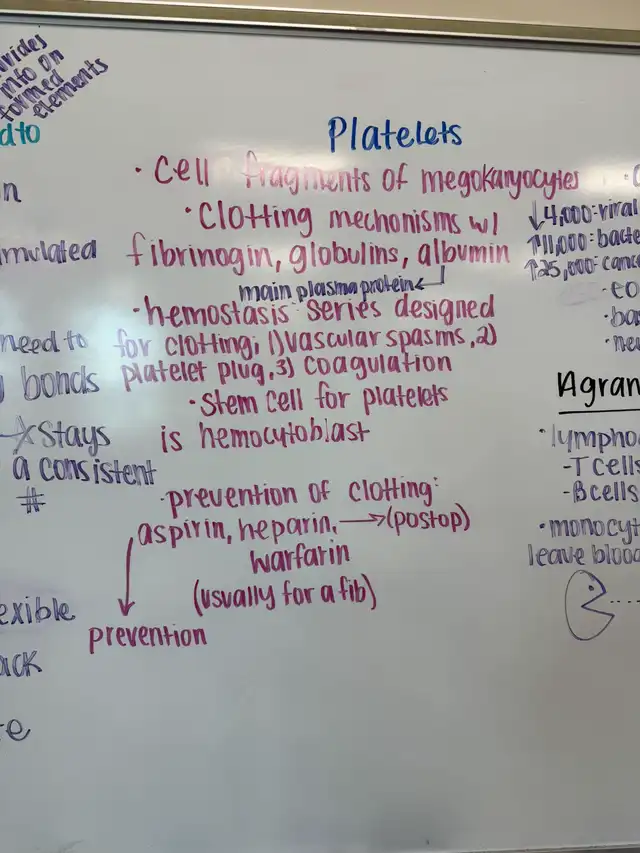 vides
into on
formed
elements
d to
n
imulated
need to
bonds
Stays
a consistent
#
exible
ack
e
Platelets
• Cell fragments of megokaryocytes
• Clotting mechonisms w/
fibrinogin, globulins, albumin
main plasma protein
• hemostasis series designed
for clotting; 1) vascular spasms, 2)
platelet plug, 3) coagulation
• Stem cell for platelets
is hemocytoblast
• prevention of clotting:
aspirin, heparin, → (postop)
warfarin
(usually for a fib)
prevention
↓4,000: viral
↑11,000: bacte
↑25,000: cance
• eo
• ba
• neu
Agran
• lympho
- T cells
- B cells
• monocyt
leave blood